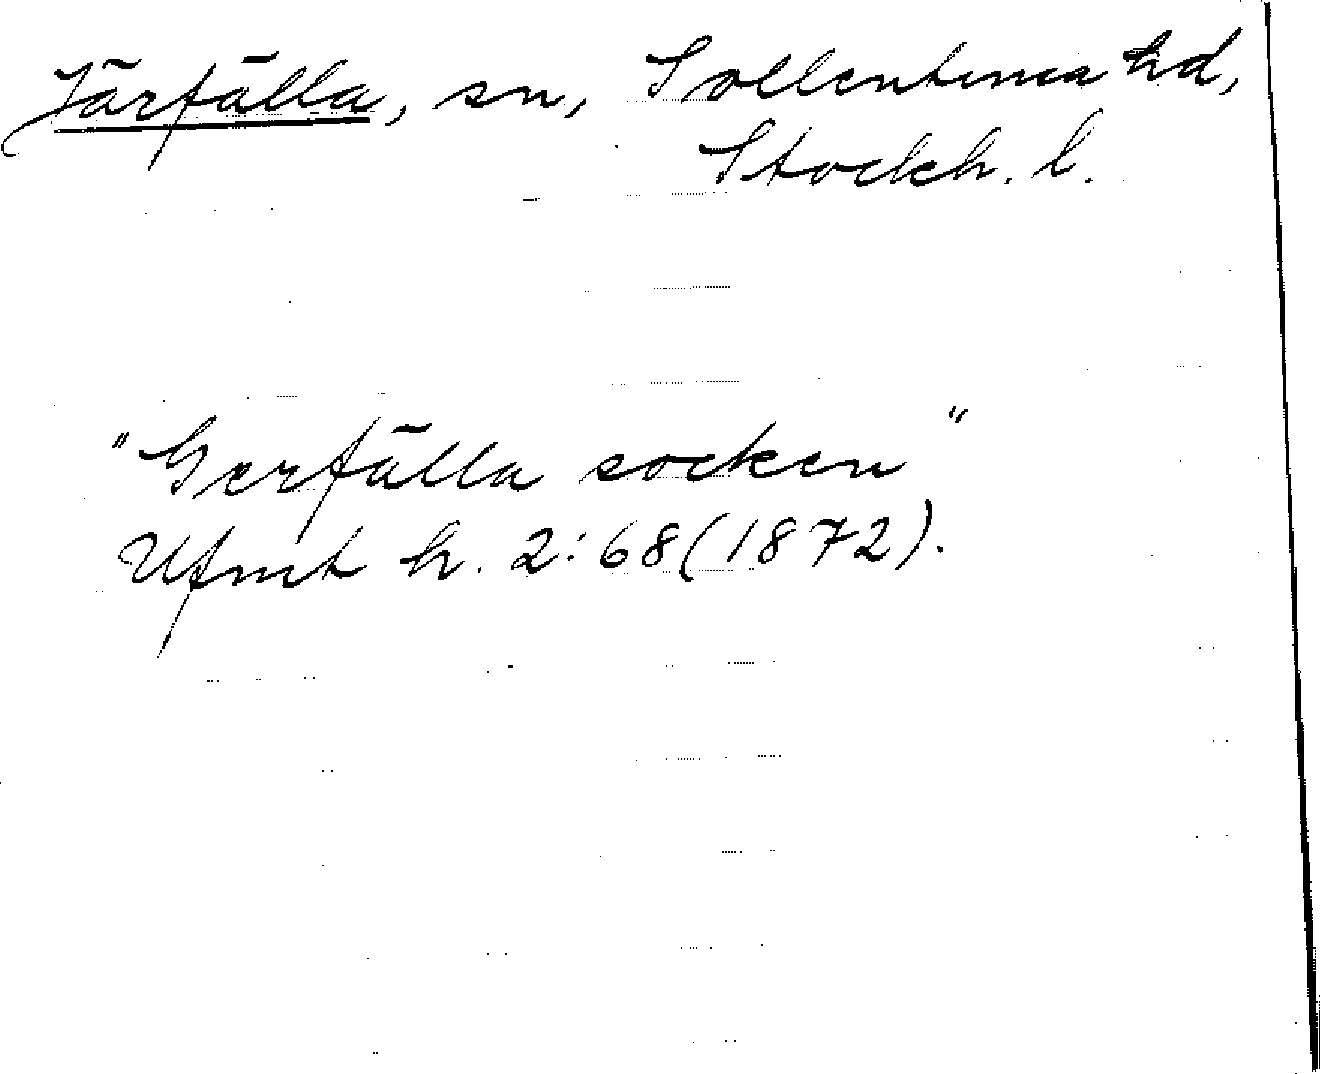 Järfälla, sn, Sollentuna hd,
Stockh. l.
"Gerfälla socken"
Ufmt h. 2:68 (1872).